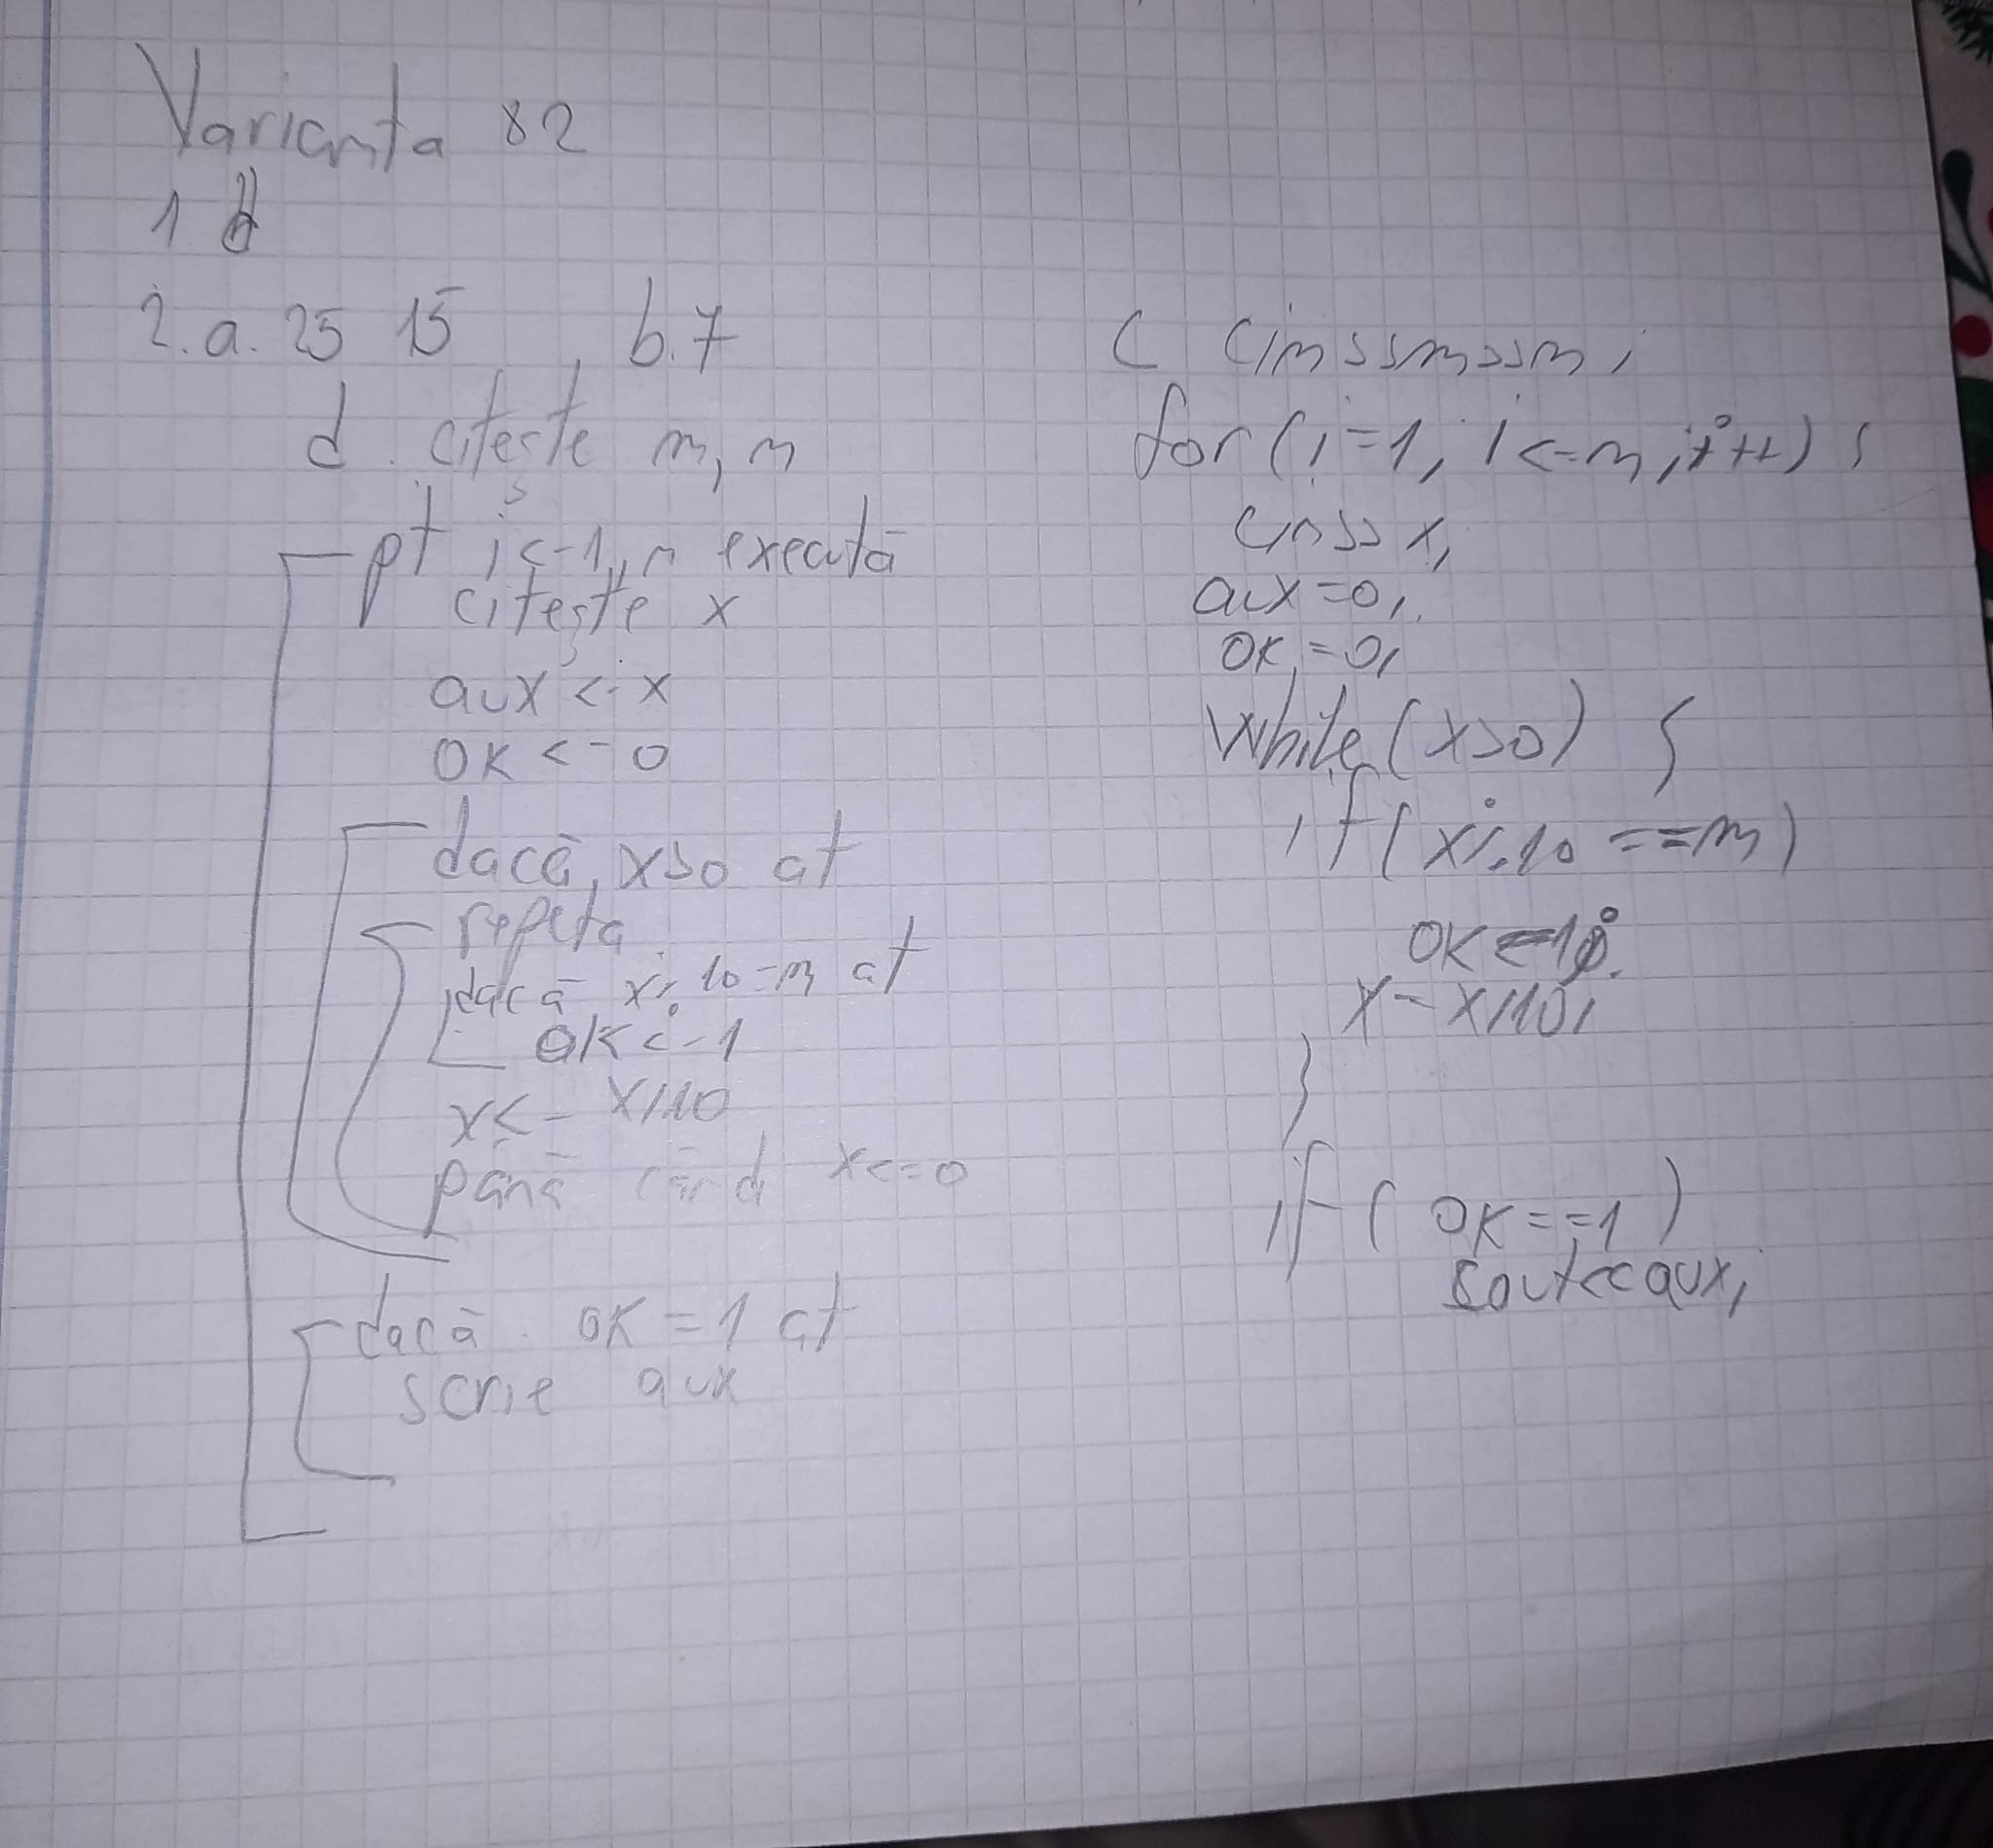 Varianta 82
1 d
2. a. 25 15 , b. 7
d. citește m, n
pt i<-1,n execută
citește x
aux <- x
ok <- 0
dacă x>0 at
repeta
dacă x%10=m at
ok<-1
x<- x/10
până când x<=0
dacă ok=1 at
scrie aux
c cin>>m>>n;
for(i=1; i<=n; i++) {
cin>>x;
aux=0;
ok=0;
while(x>0) {
if(x%10==m)
ok=1;
x=x/10;
}
if(ok==1)
cout<<aux;